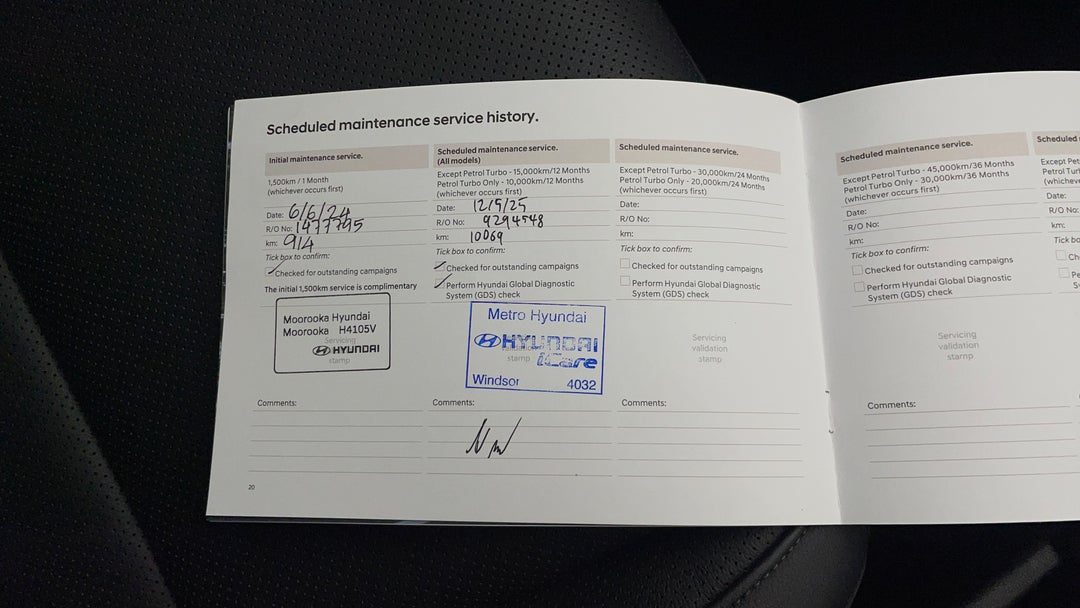 Scheduled maintenance service history.
Initial maintenance service.
1,500km / 1 Month
(whichever occurs first)
Date: 6/6/24
R/O No: 1477795
km: 914
Tick box to confirm:
Checked for outstanding campaigns
The initial 1,500km service is complimentary
Moorooka Hyundai
Moorooka H4105V
Servicing
HYUNDAI
stamp
Comments:
Scheduled maintenance service.
(All models)
Except Petrol Turbo - 15,000km/12 Months
Petrol Turbo Only - 10,000km/12 Months
(whichever occurs first)
Date: 12/5/25
R/O No: 9294548
km: 10069
Tick box to confirm:
Checked for outstanding campaigns
Perform Hyundai Global Diagnostic
System (GDS) check
Metro Hyundai
HYUNDAI
stamp iCare
Windsor 4032
Comments:
Scheduled maintenance service.
Except Petrol Turbo - 30,000km/24 Months
Petrol Turbo Only - 20,000km/24 Months
(whichever occurs first)
Date:
R/O No:
km:
Tick box to confirm:
Checked for outstanding campaigns
Perform Hyundai Global Diagnostic
System (GDS) check
Servicing
validation
stamp
Comments:
20
Scheduled maintenance service.
Except Petrol Turbo - 45,000km/36 Months
Petrol Turbo Only - 30,000km/36 Months
(whichever occurs first)
Date:
R/O No:
km:
Tick box to confirm:
Checked for outstanding campaigns
Perform Hyundai Global Diagnostic
System (GDS) check
Servicing
validation
stamp
Comments:
Scheduled
Except
Petrol
Date:
R/O No:
km:
Tick